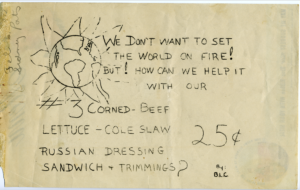 WE DON'T WANT TO SET
THE WORLD ON FIRE!
BUT! HOW CAN WE HELP IT
WITH OUR
#3 CORNED-BEEF
LETTUCE - COLE SLAW
RUSSIAN DRESSING
SANDWICH + TRIMMINGS?
25¢
BY
BLC